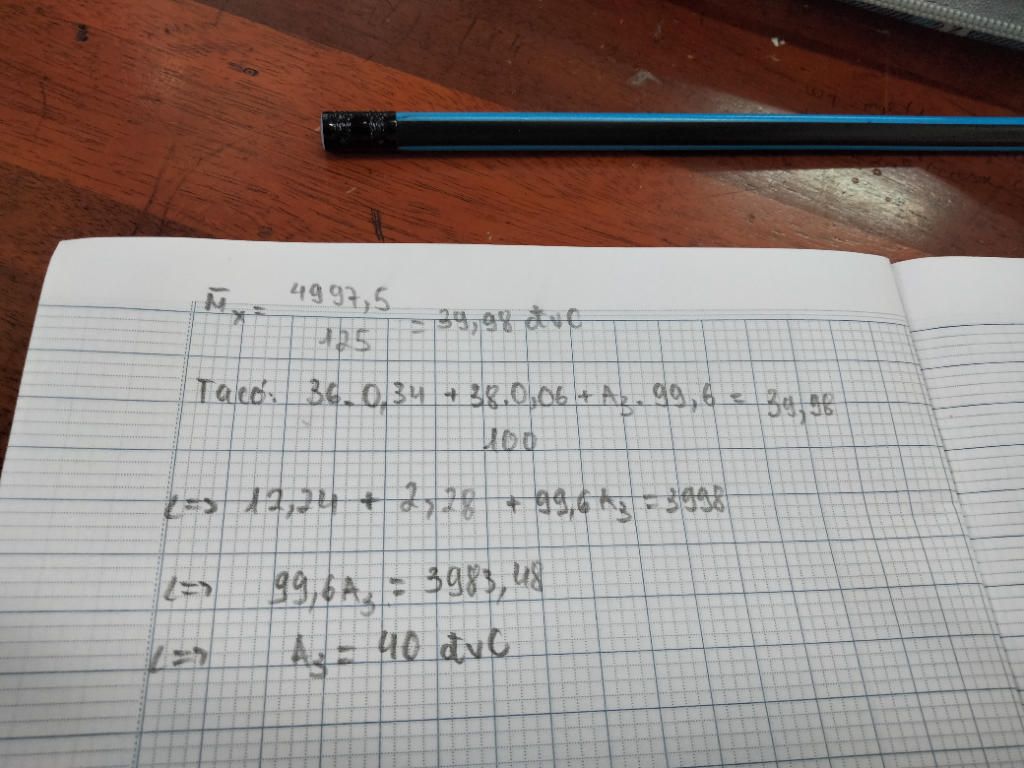 M̄x = 4997,5 / 125 = 39,98 đvC
Ta có: 36.0,34 + 38.0,06 + A3.99,6 / 100 = 39,98
<=> 12,24 + 2,28 + 99,6A3 = 3998
<=> 99,6A3 = 3983,48
<=> A3 = 40 đvC